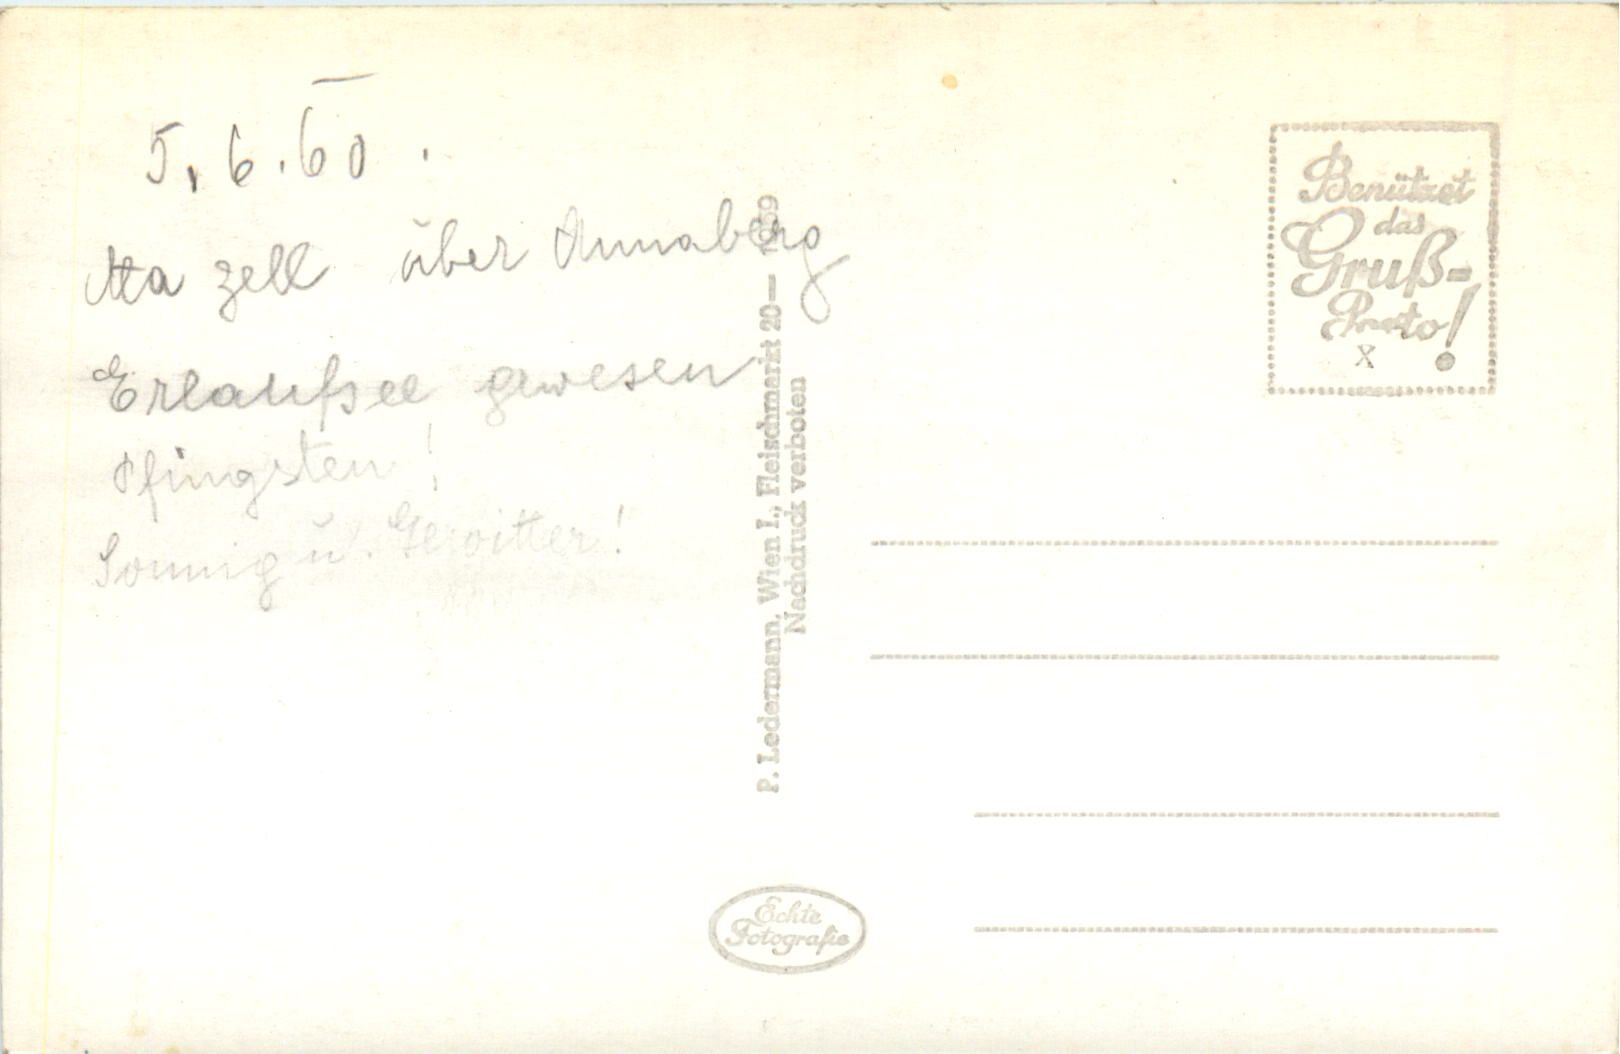 5.6.60.
Ma zell über Annaberg
Erlaufsee gewesen
Pfingsten!
Sonnig u. Gewitter!
P. Ledermann, Wien I., Fleischmarkt 20—
Nachdruck verboten
Benützet
das
Gruß-
Porto!
X
Echte
Fotografie